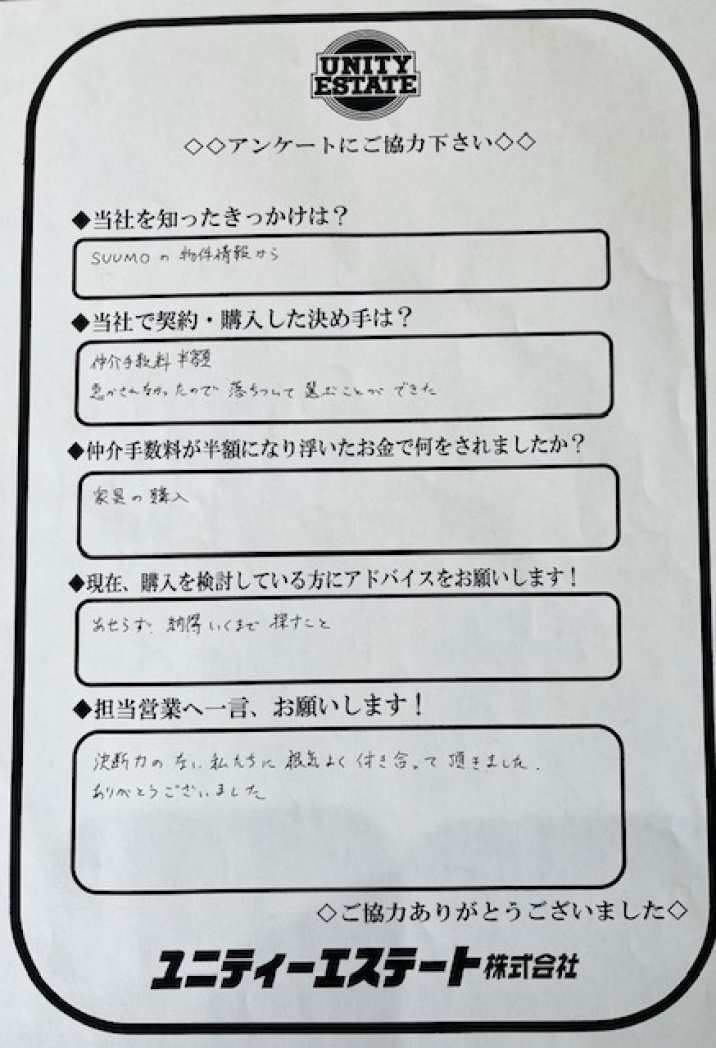 UNITY
ESTATE
◇◇アンケートにご協力下さい◇◇
◆当社を知ったきっかけは？
SUUMOの物件情報から
◆当社で契約・購入した決め手は？
仲介手数料半額
急かされなかったので落ちついて選ぶことができた
◆仲介手数料が半額になり浮いたお金で何をされましたか？
家具の購入
◆現在、購入を検討している方にアドバイスをお願いします！
あせらず、納得いくまで探すこと
◆担当営業へ一言、お願いします！
決断力のない私たちに根気よく付き合って頂きました.
ありがとうございました
◇ご協力ありがとうございました◇
ユニティーエステート株式会社